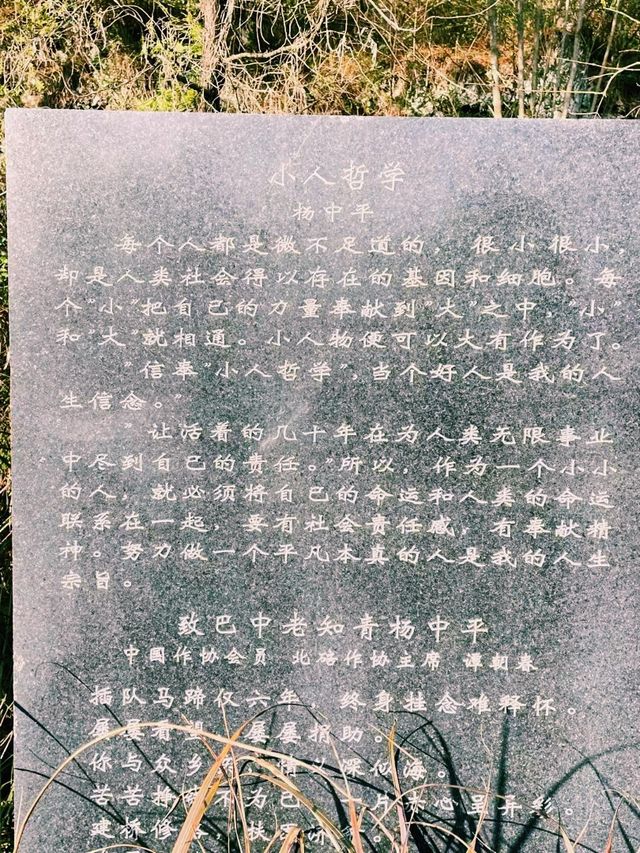 小人哲学
杨中平
每个人都是微不足道的，很小很小，
却是人类社会得以存在的基因和细胞。每
个"小"把自己的力量奉献到"大"之中，"小"
和"大"就相通。小人物便可以大有作为了。
"信奉"小人哲学"，当个好人是我的人
生信念。"
"让活着的几十年在为人类无限事业
中尽到自己的责任。"所以，作为一个小小
的人，就必须将自己的命运和人类的命运
联系在一起，要有社会责任感，有奉献精
神。努力做一个平凡本真的人是我的人生
宗旨。
致巴中老知青杨中平
中国作协会员 北碚作协主席 谭朝春
插队马蹄仅六年，终身挂念难释怀。
屡屡看 屡屡捐助。
你与众乡 情 深似海。
苦苦 不为己 一片赤心呈异彩。
建桥修路，扶